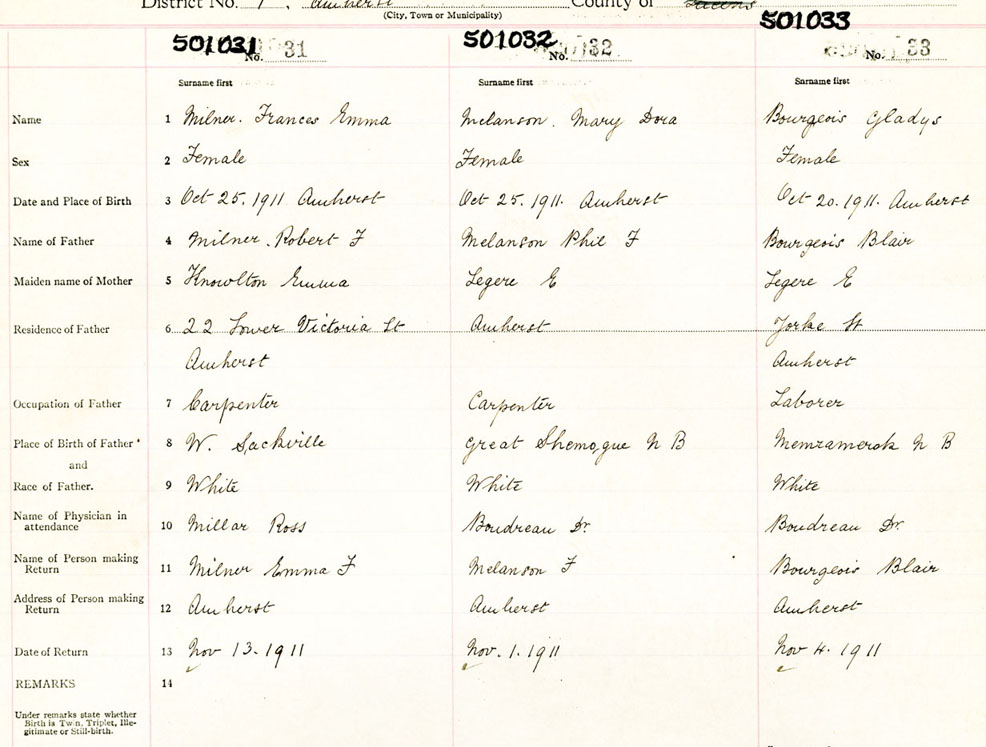 District No. 7, Amherst County of
(City, Town or Municipality)
501031 501032 501033
No. 31 No. 32 No. 33
Surname first Surname first Surname first
Name 1 Milner. Frances Emma Melanson. Mary Dora Bourgeois Gladys
Sex 2 Female Female Female
Date and Place of Birth 3 Oct 25. 1911 Amherst Oct 25. 1911. Amherst Oct 20. 1911. Amherst
Name of Father 4 Milner. Robert F Melanson Phil F Bourgeois Blair
Maiden name of Mother 5 Knowlton Emma Legere E Legere E
Residence of Father 6 22 Lower Victoria St Amherst Yorke St
Amherst Amherst
Occupation of Father 7 Carpenter Carpenter Laborer
Place of Birth of Father 8 W. Sackville Great Shemogue N B Memramcook N B
and
Race of Father. 9 White White White
Name of Physician in
attendance 10 Millar Ross Boudreau Dr. Boudreau Dr.
Name of Person making
Return 11 Milner Emma F Melanson F Bourgeois Blair
Address of Person making
Return 12 Amherst Amherst Amherst
Date of Return 13 Nov 13. 1911 Nov. 1. 1911 Nov 4. 1911
REMARKS 14
Under remarks state whether
Birth is Twin, Triplet, Ille-
gitimate or Still-birth.